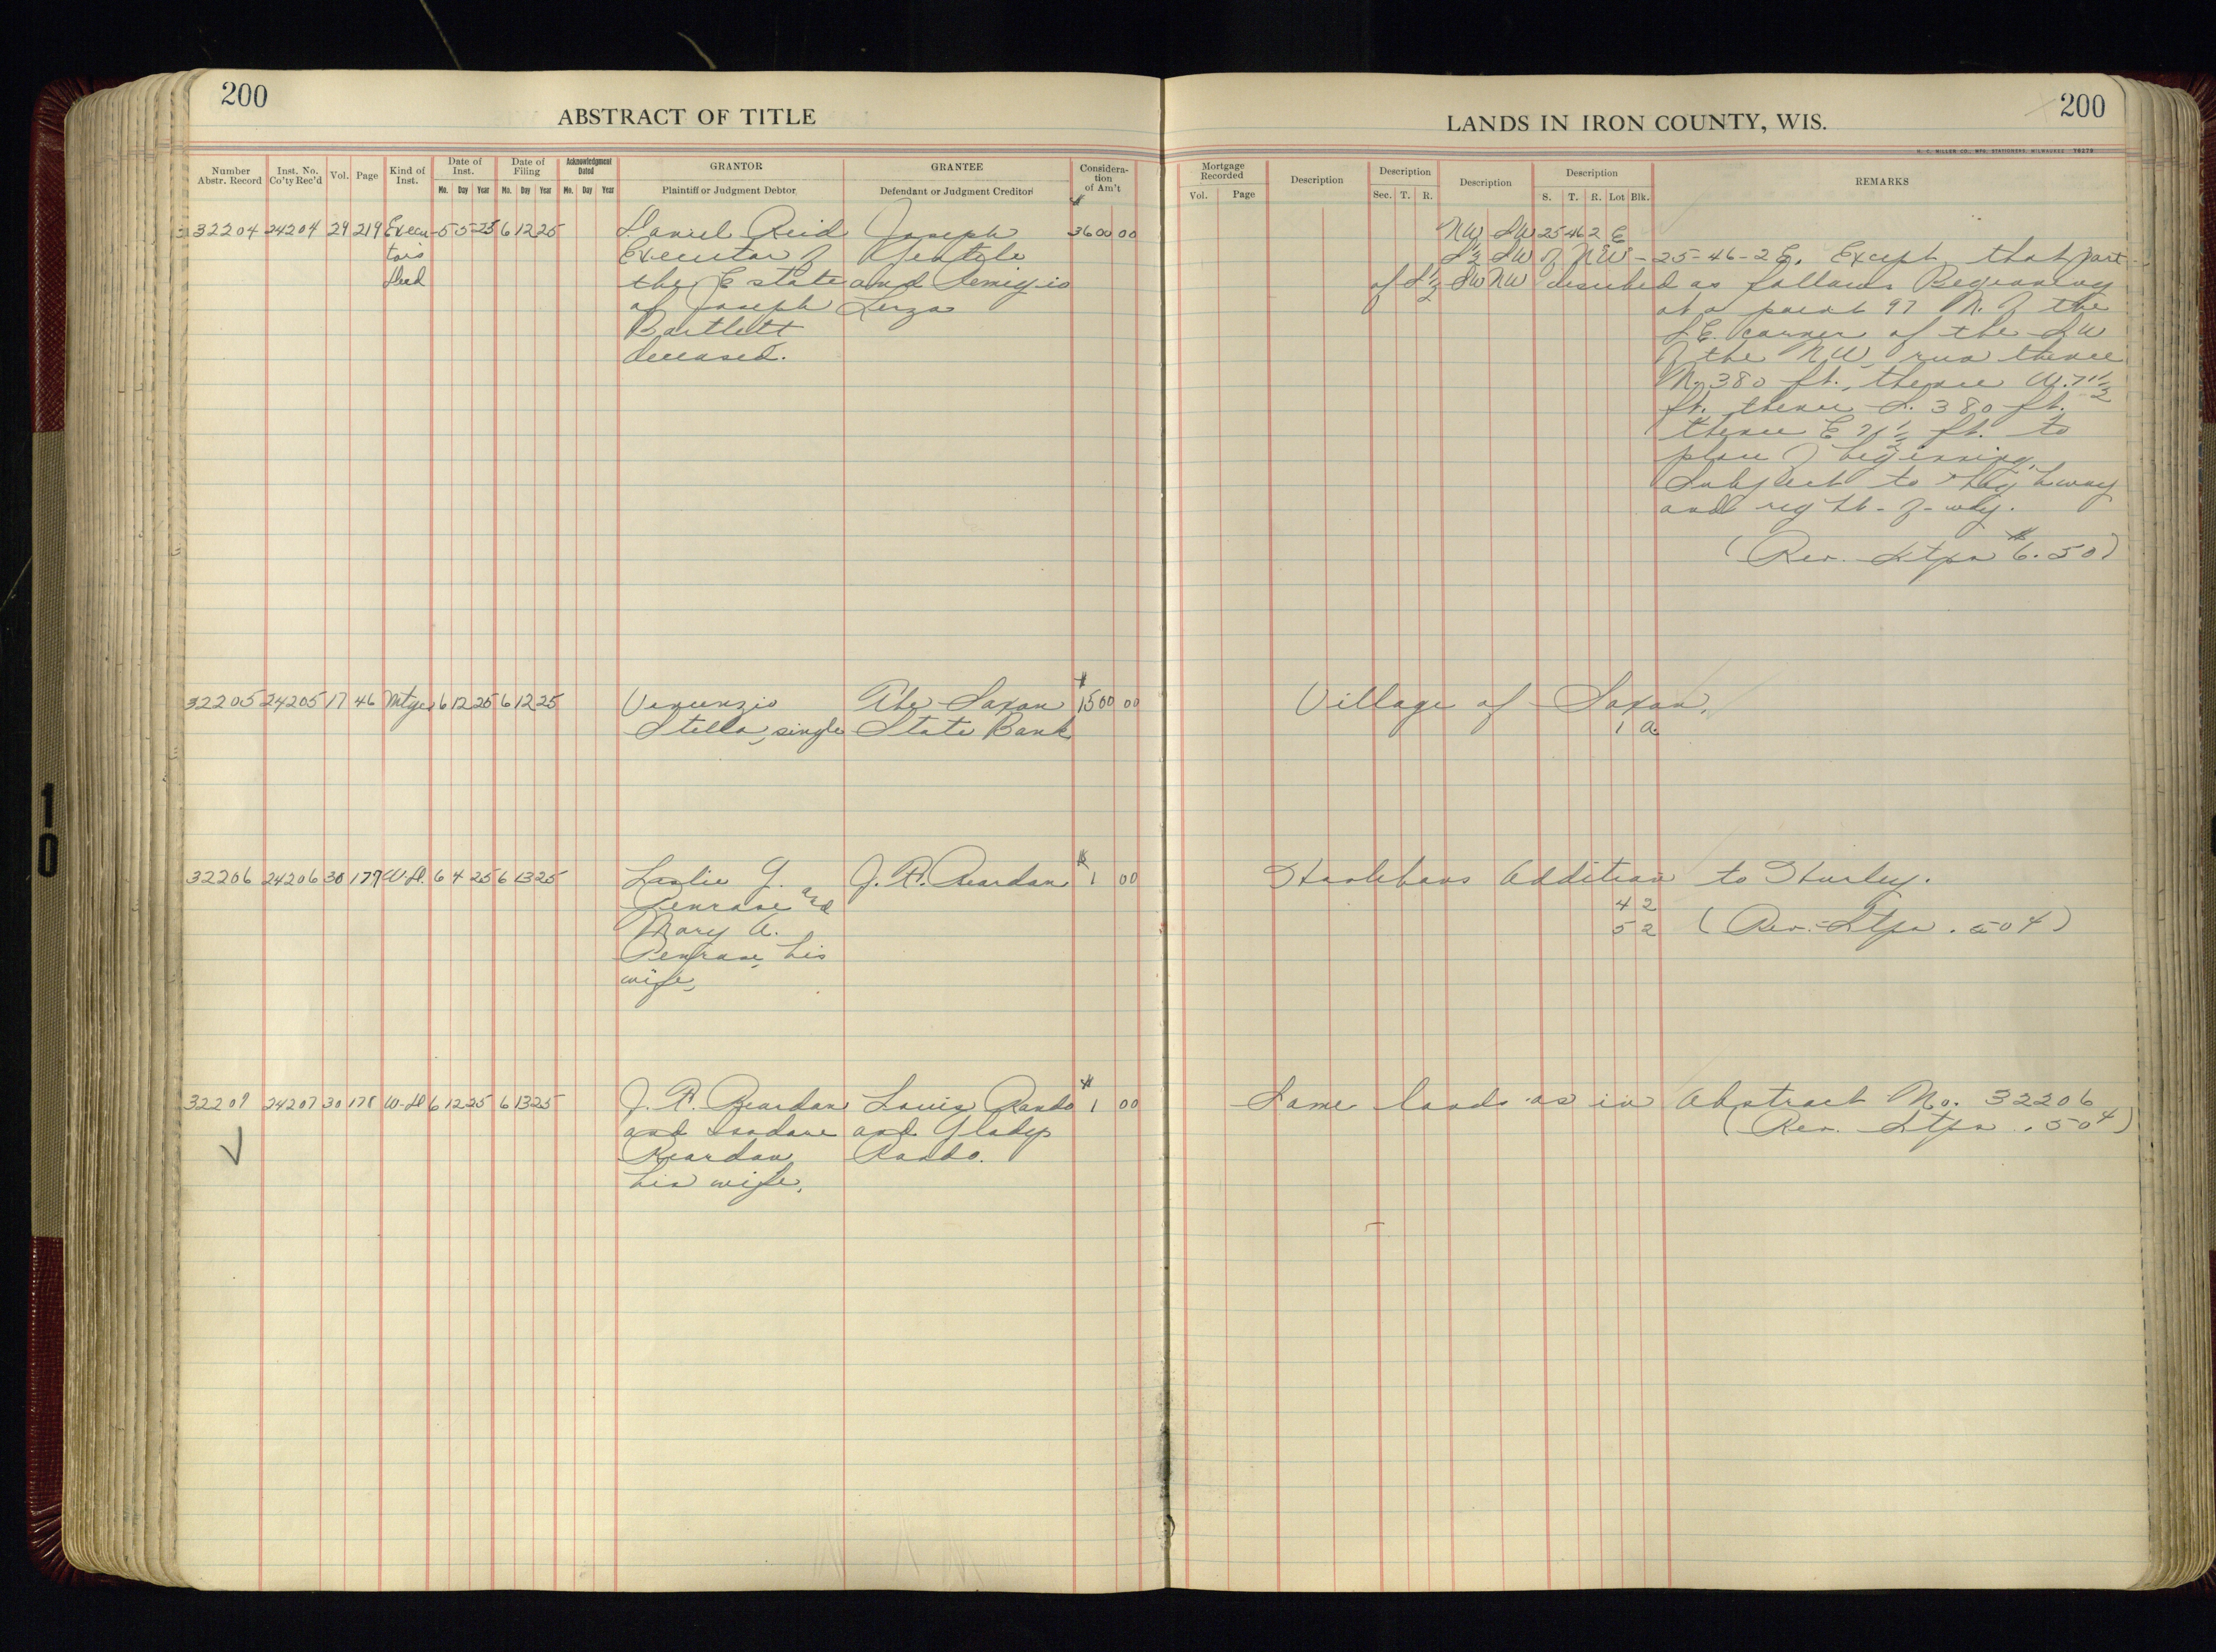 200
ABSTRACT OF TITLE
Number Abstr. Record
Inst. No. Co'ty Rec'd
Vol.
Page
Kind of Inst.
Date of Inst.
Mo. Day Year
Date of Filing
Mo. Day Year
Acknowledgment Dated
Mo. Day Year
GRANTOR
Plaintiff or Judgment Debtor
GRANTEE
Defendant or Judgment Creditor
Considera-
tion
of Am't
32204 24204 29 219 Execu- 5 5 25 6 12 25 Daniel Reid Joseph $3600 00
tors Executor of Gentile
Deed the Estate and Remigio
of Joseph Lerza
Bartlett
deceased.
32205 24205 17 46 Mtge 6 12 25 6 12 25 Vincenzio The Saxon $1500 00
Stella, single State Bank
32206 24206 30 177 W.D. 6 4 25 6 13 25 Leslie G. J. F. Reardon $1 00
Penrose and
Mary A.
Penrose, his
wife,
32207 24207 30 178 W.D. 6 12 25 6 13 25 J. F. Reardon Louis Rando $1 00
and Isadore and Gladys
Reardon, Rando.
his wife,
200
LANDS IN IRON COUNTY, WIS.
H. C. MILLER CO., MFG. STATIONERS, MILWAUKEE 76276
Mortgage Recorded
Vol. Page
Description
Description
Sec. T. R.
Description
Description
S. T. R. Lot Blk.
REMARKS
NW SW 25 46 2 E
S½ SW of NW - 25-46-2 E. Except that part
of S½ SW NW described as follows Beginning
at a point 97 N. of the
S.E. corner of the SW
of the NW, run thence
N. 380 ft., thence W. 71½
ft. thence S. 380 ft.
thence E 71½ ft. to
place of beginning,
Subject to highway
and right-of-way.
(Rev. Stps $6.50)
Village of Saxon.
1 a.
Addition to Hurley.
4 2
5 2 (Rev. Stps .50¢)
Same lands as in Abstract No. 32206
(Rev. Stps .50¢)
10